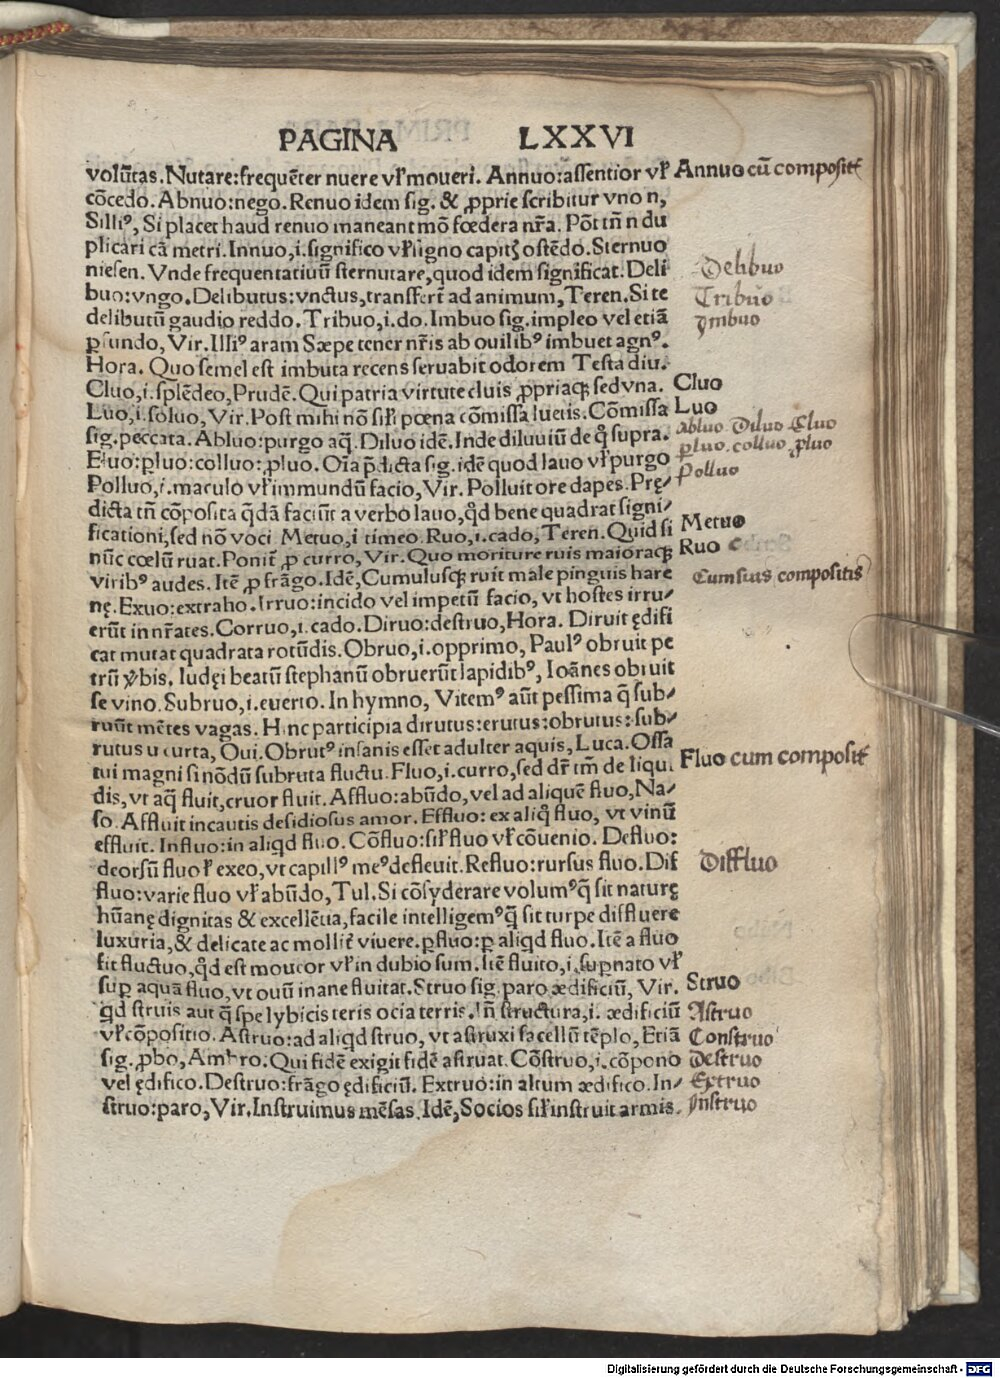 PAGINA LXXVI
volũtas. Nutare: frequẽter nuere vł moueri. Annuo: assentior vł Annuo cũ composit
cõcedo. Abnuo: nego. Renuo idem sig. & ꝓprie scribitur vno n,
Silliꝰ, Si placet haud renuo maneant mõ fœdera nr̃a. Põt tñ n du
plicari cã metri. Innuo, i. significo vł signo capitꝭ ostẽdo. Sternuo
niesen. Vnde frequentatiuũ sternutare, quod idem significat. Deli
buo: vngo. Delibutus: vnctus, transfert̃ ad animum, Teren. Si te
delibutũ gaudio reddo. Tribuo, i. do. Imbuo sig. impleo vel etiã
ꝑfundo, Vir. Illiꝰ aram Sæpe tener nr̃is ab ouilibꝰ imbuet agnꝰ.
Hora. Quo semel est imbuta recens seruabit odorem Testa diu.
Cluo, i. splẽdeo, Prudẽ. Qui patria virtute cluis ꝓpriaqꝫ sed vna.
Luo, i. soluo, Vir. Post mihi nõ sił pœna cõmissa luetis. Cõmissa
sig. peccata. Abluo: purgo aq̃. Diluo idẽ. Inde diluuiũ de q̊ supra.
Eluo: ꝑluo: colluo: ꝓluo. Oĩa p̃dicta sig. idẽ quod lauo vł purgo
Polluo, i. maculo vł immundũ facio, Vir. Polluit ore dapes. Prę⸗
dicta tñ cõposita q̃dã faciũt a verbo lauo, qd̃ bene quadrat signi⸗
ficationi, sed nõ voci Metuo, i timeo. Ruo, i. cado, Teren. Quid si
nũc cœlũ ruat. Ponit̃ ꝓ curro, Vir. Quo moriture ruis maioraqꝫ
viribꝰ audes. Itẽ ꝓ frãgo. Idẽ, Cumulusqꝫ ruit male pinguis hare
nę. Exuo: extraho. Irruo: incido vel impetũ facio, vt hostes irru⸗
erũt in nr̃ates. Corruo, i. cado. Diruo: destruo, Hora. Diruit ędifi
cat mutat quadrata rotũdis. Obruo, i. opprimo, Paulꝰ obruit pe
trũ v̾bis. Iudęi beatũ stephanũ obruerũt lapidibꝰ, Ioãnes obruit
se vino. Subruo, i. euerto. In hymno, Vitemꝰ aũt pessima q̃ sub⸗
ruũt mẽtes vagas. Hinc participia dirutus: erutus: obrutus: sub⸗
rutus u curta, Oui. Obrutꝰ insanis esset adulter aquis, Luca. Ossa
tui magni si nõdũ subruta fluctu. Fluo, i. curro, sed dr̃ tm̃ de liqui
dis, vt aq̃ fluit, cruor fluit. Affluo: abũdo, vel ad aliquẽ fluo, Na⸗
so. Affluit incautis desidiosus amor. Effluo: ex aliq̊ fluo, vt vinũ
effluit. Influo: in aliqd fluo. Cõfluo: sił fluo vł cõuenio. Defluo:
deorsũ fluo ł exeo, vt capillꝰ meꝰ defleuit. Refluo: rursus fluo. Dif
fluo: varie fluo vł abũdo, Tul. Si cõsyderare volumꝰ q̃ sit naturę
hũanę dignitas & excellẽtia, facile intelligemꝰ q̃ sit turpe diffluere
luxuria, & delicate ac mollit̃ viuere. ꝑfluo: ꝑ aliqd fluo. Itẽ a fluo
fit fluctuo, qd̃ est moueor vł in dubio sum. Itẽ fluito, i. suꝑnato vł
suꝑ aquã fluo, vt ouũ inane fluitat. Struo sig. paro ædificiũ, Vir.
qd struis aut q̃ spe lybicis teris ocia terris. Iñ structura, i. ædificiũ
vł cõpositio. Astruo: ad aliqd struo, vt astruxi sacellũ tẽplo, Etiã
sig. ꝓbo, Ambro. Qui fidẽ exigit fidẽ astruat. Cõstruo, i. cõpono
vel ędifico. Destruo: frãgo ędificiũ. Extruo: in altum ædifico. In⸗
struo: paro, Vir. Instruimus mẽsas. Idẽ, Socios sił instruit armis.
Delibuo
Tribuo
Imbuo
Cluo
Luo
Abluo Diluo Eluo
ꝑluo. colluo, ꝓluo
Polluo
Metuo
Ruo
Cum suis compositis
Fluo cum composit
Diffluo
Struo
Astruo
Construo
Destruo
Extruo
Instruo
Digitalisierung gefördert durch die Deutsche Forschungsgemeinschaft - DFG